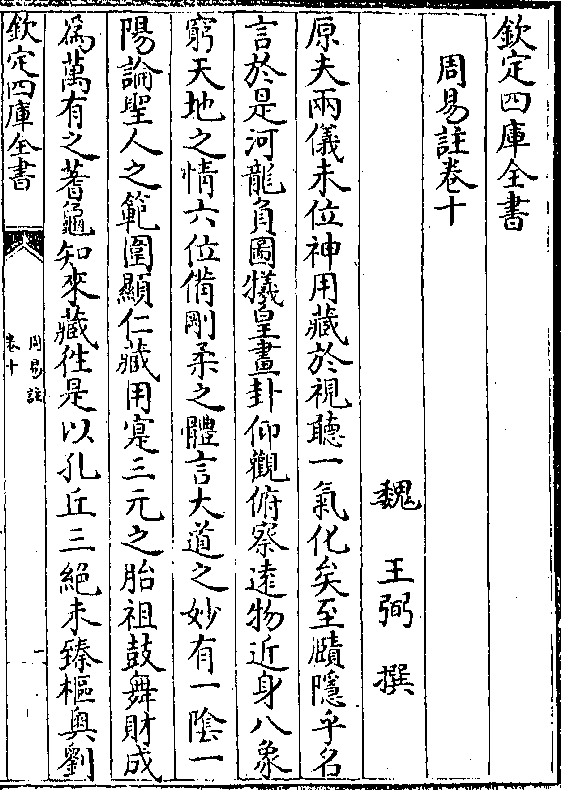 欽定四庫全書
周易註卷十
魏王弼撰
原夫兩儀未位神用藏於視聽一氣化矣至賾隱乎名
言於是河龍負圖犧皇畫卦仰觀俯察遠物近身八象
窮天地之情六位備剛柔之體言大道之妙有一陰一
陽論聖人之範圍顯仁藏用寔三元之胎祖鼓舞財成
為萬有之蓍龜知來藏往是以孔丘三絶未臻樞奧劉
欽定四庫全書
周易註
卷十
一